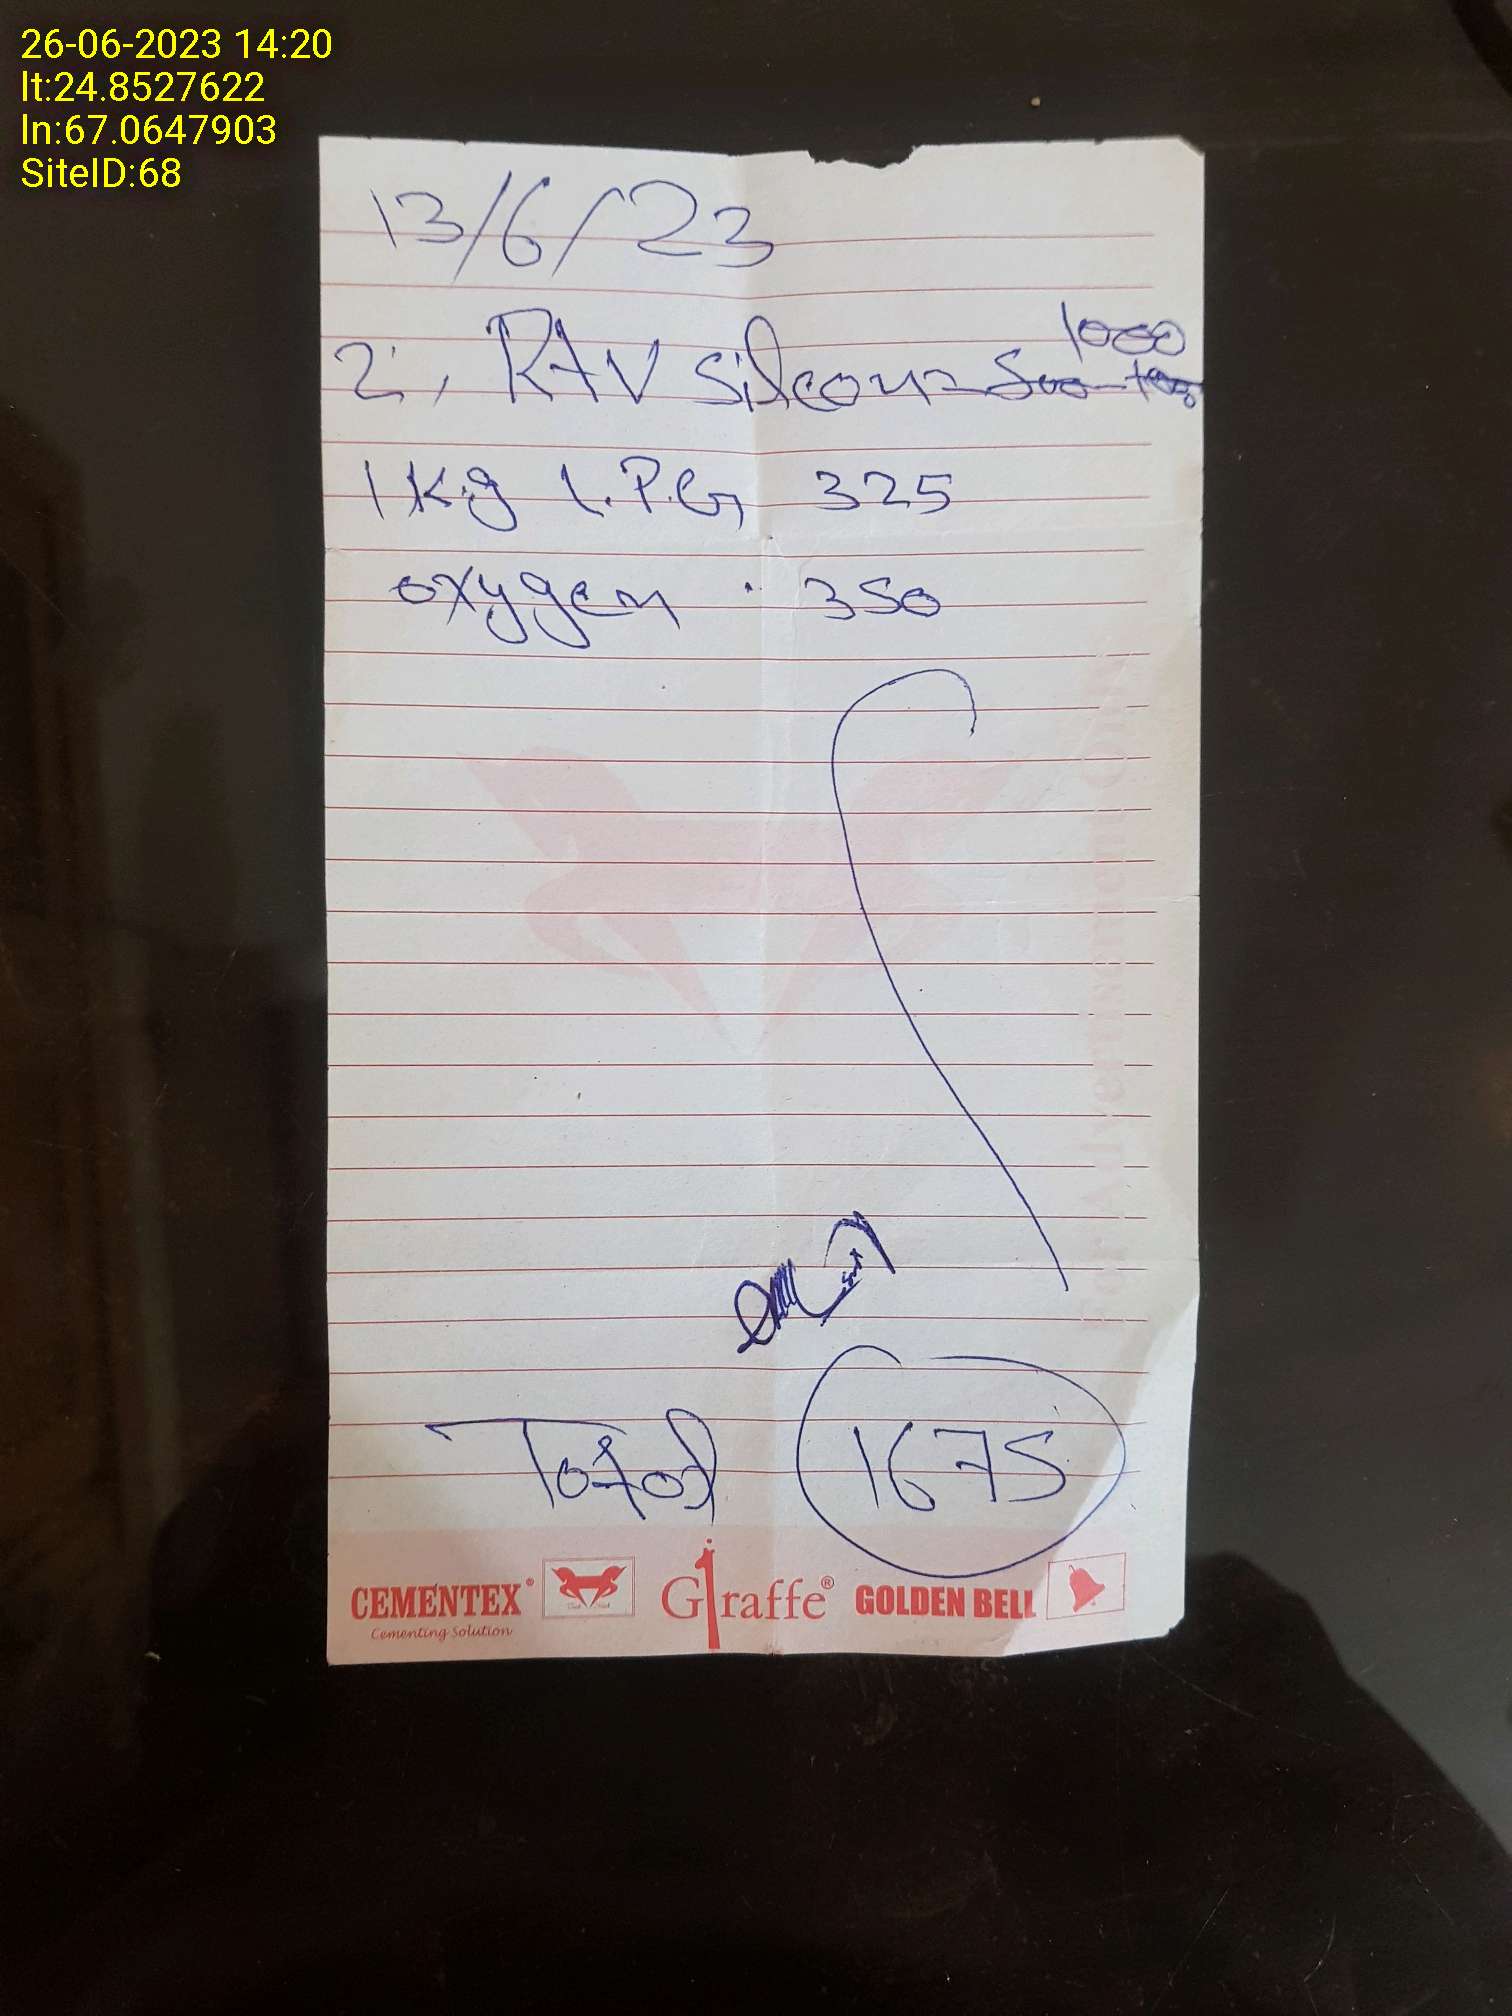 26-06-2023 14:20
lt:24.8527622
ln:67.0647903
SiteID:68
13/6/23
1000
2, RTV silicone 500
1 K.g L.P.G, 325
oxygen . 350
Total 1675
CEMENTEX® Giraffe® GOLDEN BELL
Cementing Solution